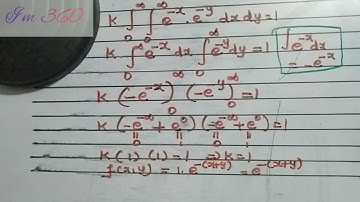 Im 360
K ∫₀^∞ ∫₀^∞ e^-x . e^-y dx dy = 1
K ∫₀^∞ e^-x dx ∫₀^∞ e^-y dy = 1
∫ e^-x dx
= -e^-x
K (-e^-x)₀^∞ (-e^-y)₀^∞ = 1
K (-e^-∞ + e^0) (-e^-∞ + e^0) = 1
0 1 0 1
K (1) (1) = 1 ⇒ K = 1
f(x,y) = 1. e^-(x+y) = e^-(x+y)